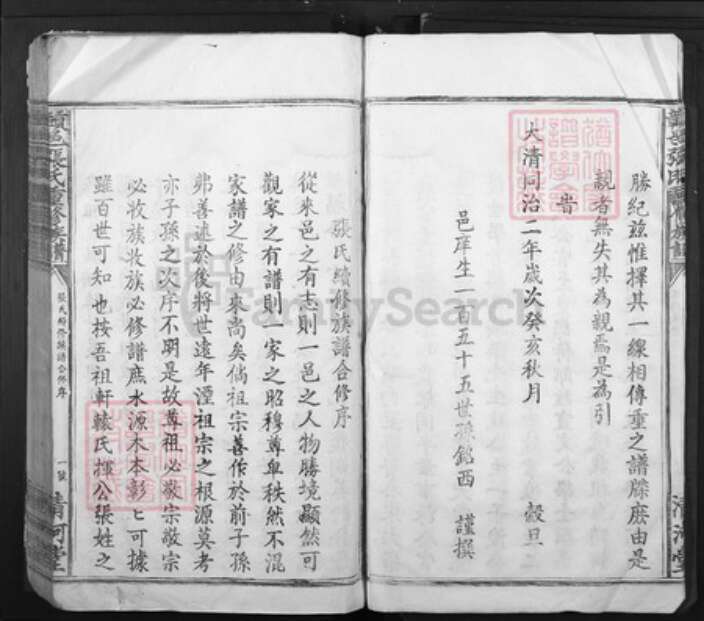 勝紀玆惟擇其一線相傳垂之譜牒庶由是
親者無失其為親焉是為引
旹
大清同治二年歲次癸亥秋月 穀旦
邑庠生一百五十五世孫銘西 謹撰
張氏續修族譜合修序
從來邑之有志則一邑之人物勝境顯然可
觀家之有譜則一家之昭穆尊卑秩然不混
家譜之修由來尚矣倘祖宗善作於前子孫
弗善述於後將世遠年湮祖宗之根源莫考
亦子孫之次序不明是故尊祖必敬宗敬宗
必收族收族必修譜庶水源木本彰彰可據
雖百世可知也按吾祖軒轅氏揮公張姓之
邑張氏續修族譜
張氏續修族譜合修序
一號
清河堂
清河堂
FamilySearch